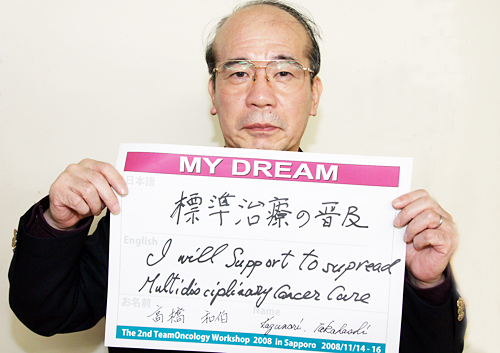 MY DREAM
日本語
標準治療の普及
English
I will Support to supread
Multidisciplinary Cancer Care
お名前
Name
高橋 和伯
Takahashi
The 2nd TeamOncology Workshop 2008 in Sapporo 2008/11/14 - 16